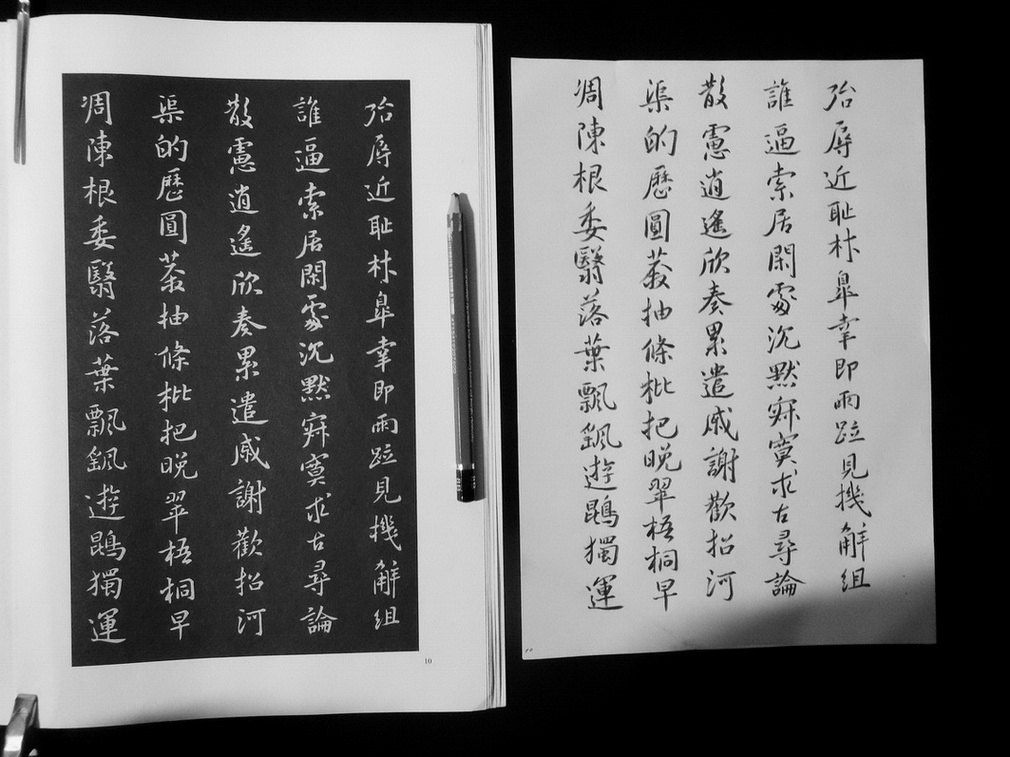 殆辱近耻林皐幸即兩疏見機解組
誰逼索居閑處沉默寂寞求古尋論
散慮逍遙欣奏累遣慼謝歡招河
渠的歷圓莽抽條枇把晚翠梧桐早
凋陳根委翳落葉飄颻遊鵾獨運
10
殆辱近耻林皐幸即兩疏見機解組
誰逼索居閑處沉默寂寞求古尋論
散慮逍遙欣奏累遣慼謝歡招河
渠的歷圓莽抽條枇把晚翠梧桐早
凋陳根委翳落葉飄颻遊鵾獨運